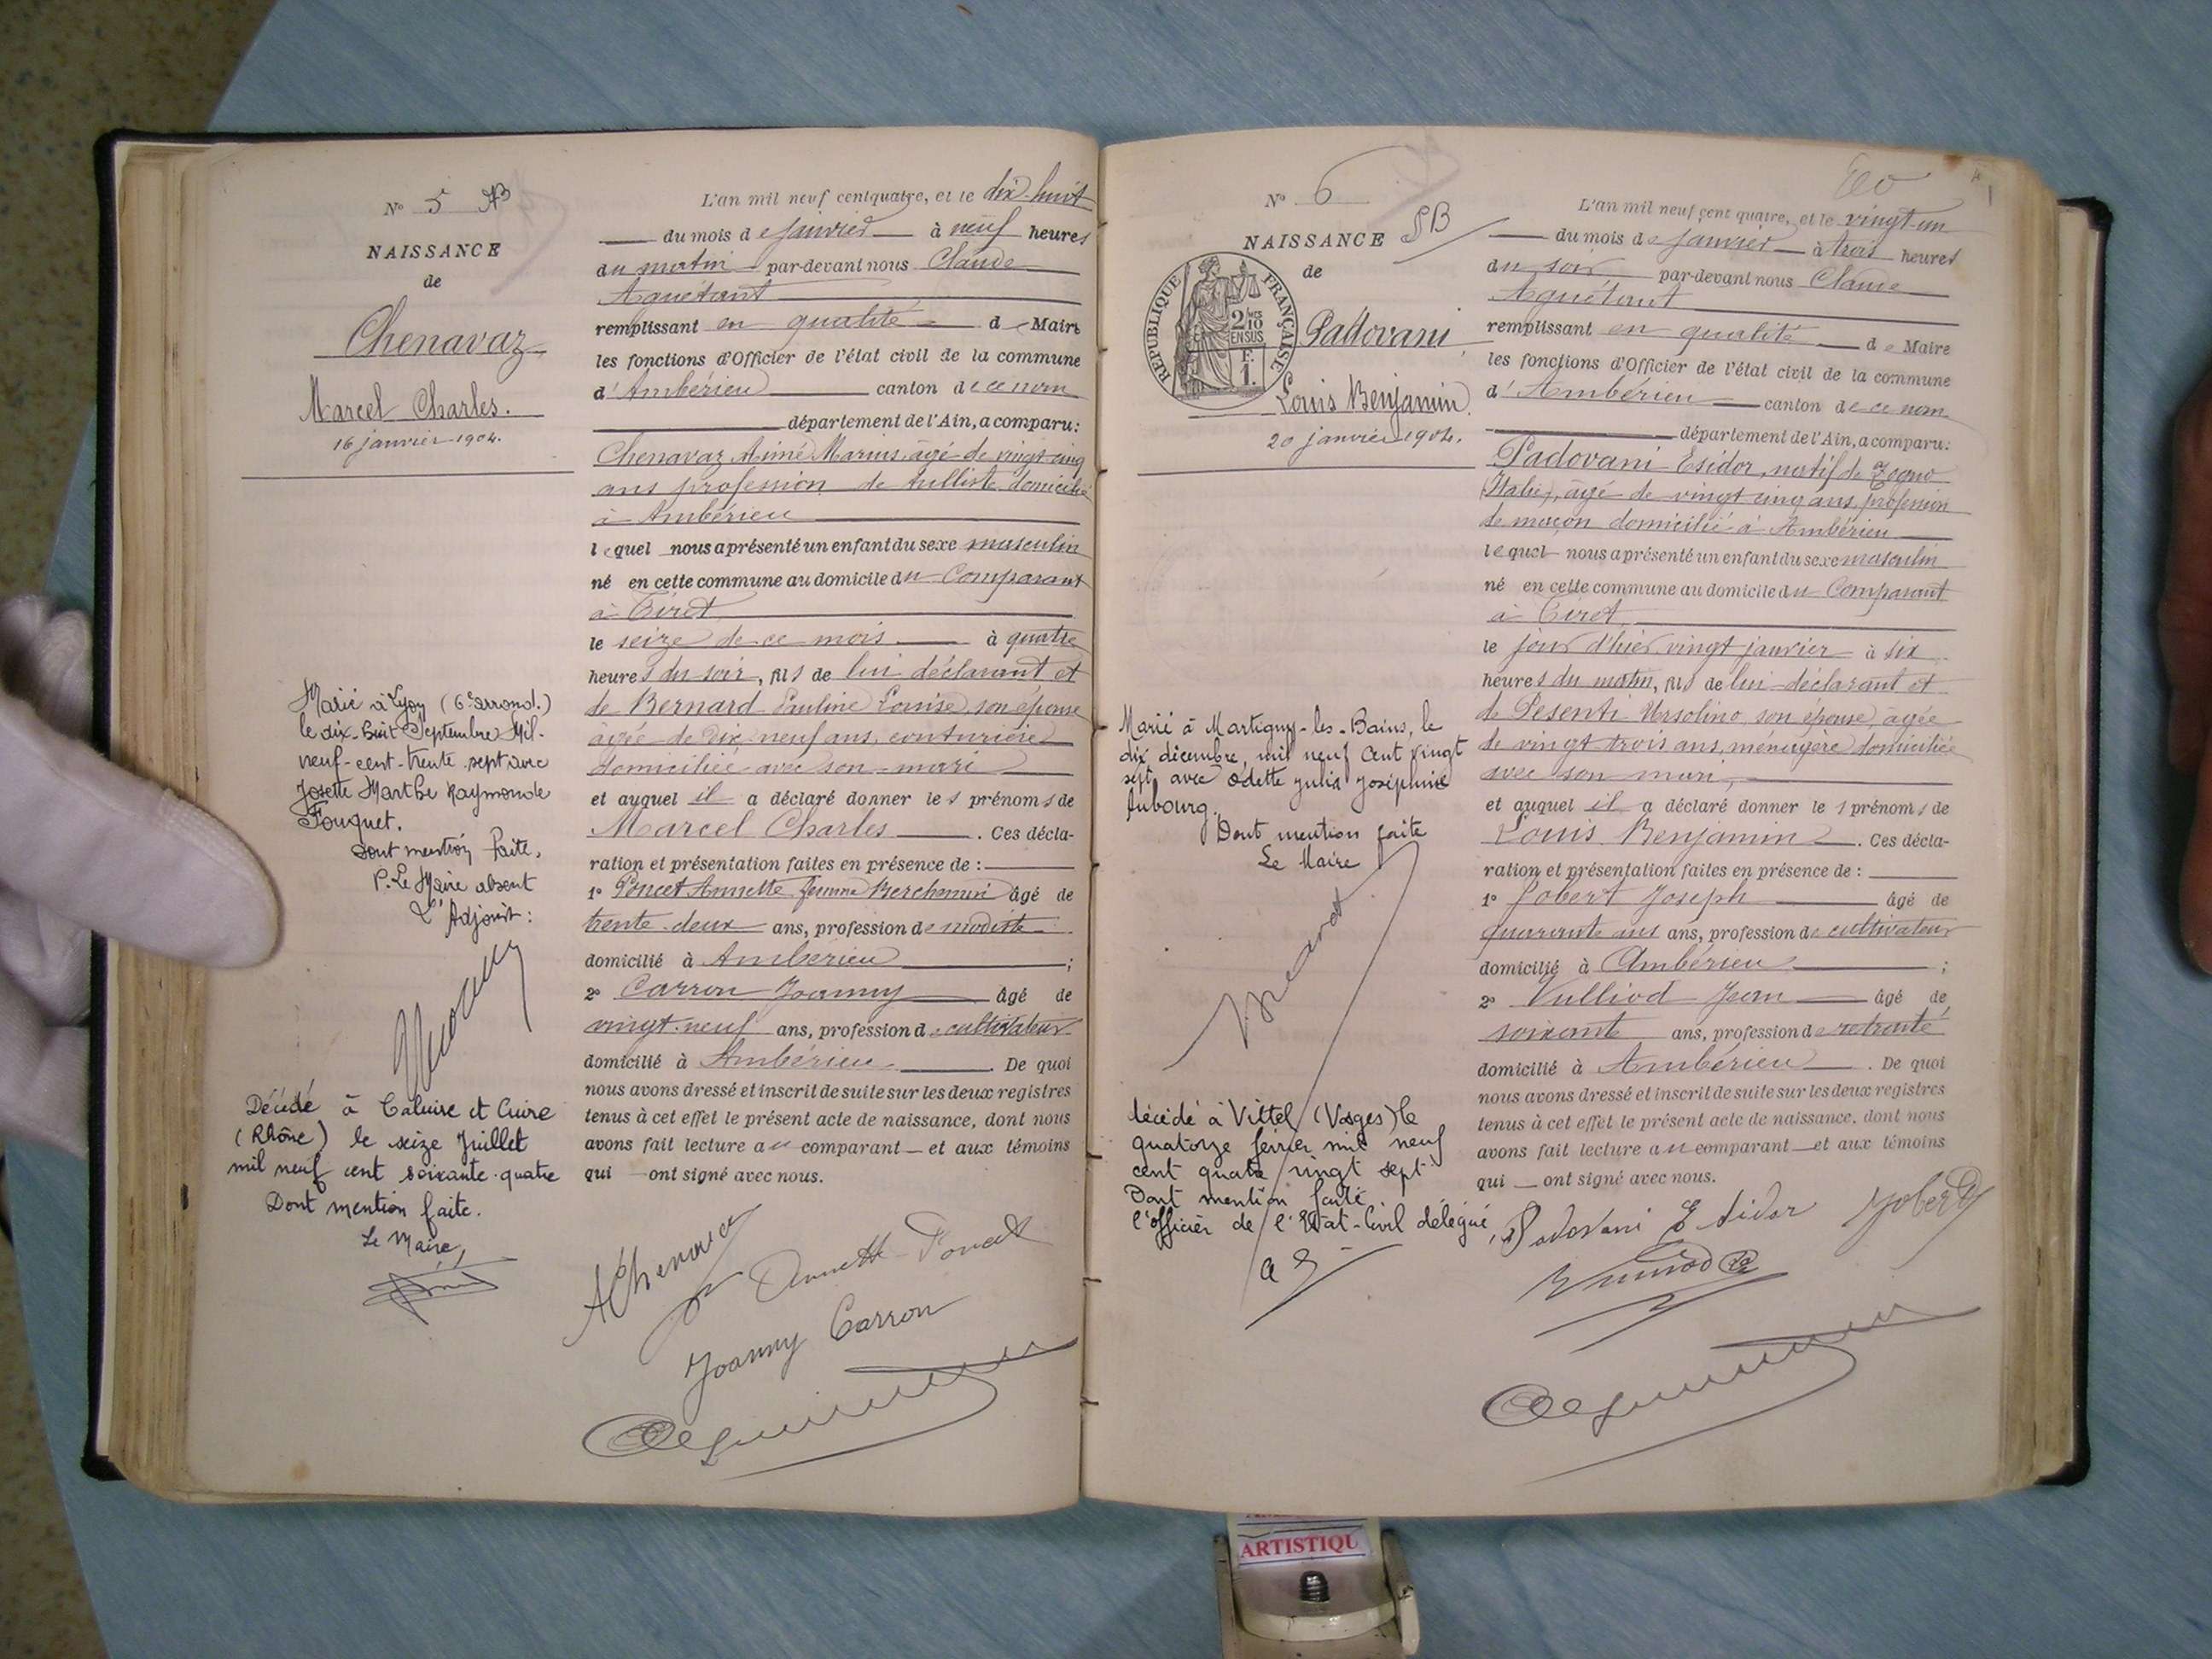 N° 5 AB
NAISSANCE
de
Chenavaz
Marcel Charles.
16 janvier 1904.
Marié à Lyon (6e arrond.)
le dix-huit Septembre Mil-
neuf-cent-trente sept avec
Josette Marthe Raymonde
Fouquet.
Dont mention faite.
P. Le Maire absent
L'Adjoint:
Décédé à Caluire et Cuire
(Rhône) le seize Juillet
mil neuf cent soixante-quatre
Dont mention faite.
Le Maire,
L'an mil neuf cent quatre, et le dix-huit
du mois de janvier à neuf heures
du matin par-devant nous Claude
Aguétant
remplissant en qualité de Maire
les fonctions d'Officier de l'état civil de la commune
d'Ambérieu canton de ce nom
département de l'Ain, a comparu:
Chenavaz Aimé Marius âgé de vingt-cinq
ans profession de tulliste domicilié
à Ambérieu
lequel nous a présenté un enfant du sexe masculin
né en cette commune au domicile du Comparant
à Tiret
le seize de ce mois à quatre
heures du soir, fils de lui déclarant et
de Bernard Pauline Louise, son épouse
âgée de dix neuf ans, couturière
domiciliée avec son mari
et auquel il a déclaré donner les prénoms de
Marcel Charles. Ces décla-
ration et présentation faites en présence de :
1° Poncet Annette femme âgé de
trente-deux ans, profession de modiste
domicilié à Ambérieu ;
2° Carron Joanny âgé de
vingt-neuf ans, profession de cultivateur
domicilié à Ambérieu. De quoi
nous avons dressé et inscrit de suite sur les deux registres
tenus à cet effet le présent acte de naissance, dont nous
avons fait lecture au comparant et aux témoins
qui ont signé avec nous.
AChenavaz
Annette Poncet
Joanny Carron
N° 6 SB
NAISSANCE
de
RÉPUBLIQUE FRANÇAISE
2/10
EN SUS
F.
1.
Padovani
Louis Benjamin.
20 janvier 1904.
Marié à Martigny-les-Bains, le
dix décembre, mil neuf cent vingt
sept, avec Odette Julia Joséphine
Aubourg.
Dont mention faite
Le Maire
décédé à Vittel (Vosges) le
quatorze février mil neuf
cent quatre vingt sept
Dont mention faite
l'officier de l'Etat-Civil délégué,
L'an mil neuf cent quatre, et le vingt-un
du mois de janvier à trois heures
du soir par-devant nous Claude
Aguétant
remplissant en qualité de Maire
les fonctions d'Officier de l'état civil de la commune
d'Ambérieu canton de ce nom
département de l'Ain, a comparu:
Padovani Esidor, natif de Zogno
(Italie), âgé de vingt cinq ans, profession
de maçon domicilié à Ambérieu
lequel nous a présenté un enfant du sexe masculin
né en cette commune au domicile du Comparant
à Tiret
le jour d'hier vingt janvier à six
heures du matin, fils de lui déclarant et
de Pesenti Ursolino son épouse âgée
de vingt trois ans, ménagère domiciliée
avec son mari,
et auquel il a déclaré donner les prénoms de
Louis Benjamin. Ces décla-
ration et présentation faites en présence de :
1° Jobert Joseph âgé de
quarante ans ans, profession de cultivateur
domicilié à Ambérieu ;
2° Vulliod Jean âgé de
soixante ans, profession de retraité
domicilié à Ambérieu. De quoi
nous avons dressé et inscrit de suite sur les deux registres
tenus à cet effet le présent acte de naissance, dont nous
avons fait lecture au comparant et aux témoins
qui ont signé avec nous.
Padovani Esidor Jobert
ARTISTIQU